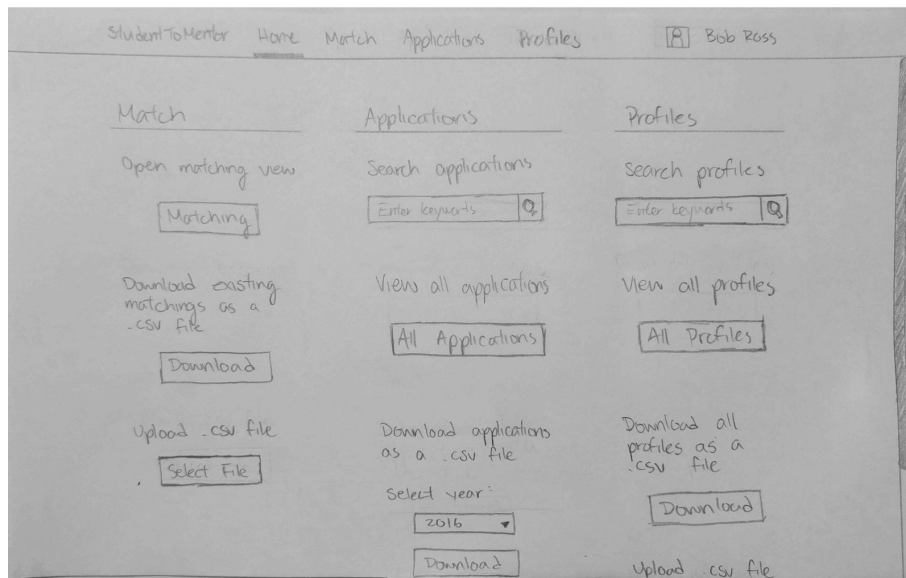 StudentToMentor Home Match Applications Profiles Bob Ross
Match
Open matching view
Matching
Download existing
matchings as a
.csv file
Download
Upload .csv file
Select File
Applications
Search applications
Enter keywords
View all applications
All Applications
Download applications
as a .csv file
Select year:
2016
Download
Profiles
Search profiles
Enter keywords
View all profiles
All Profiles
Download all
profiles as a
.csv file
Download
Upload .csv file